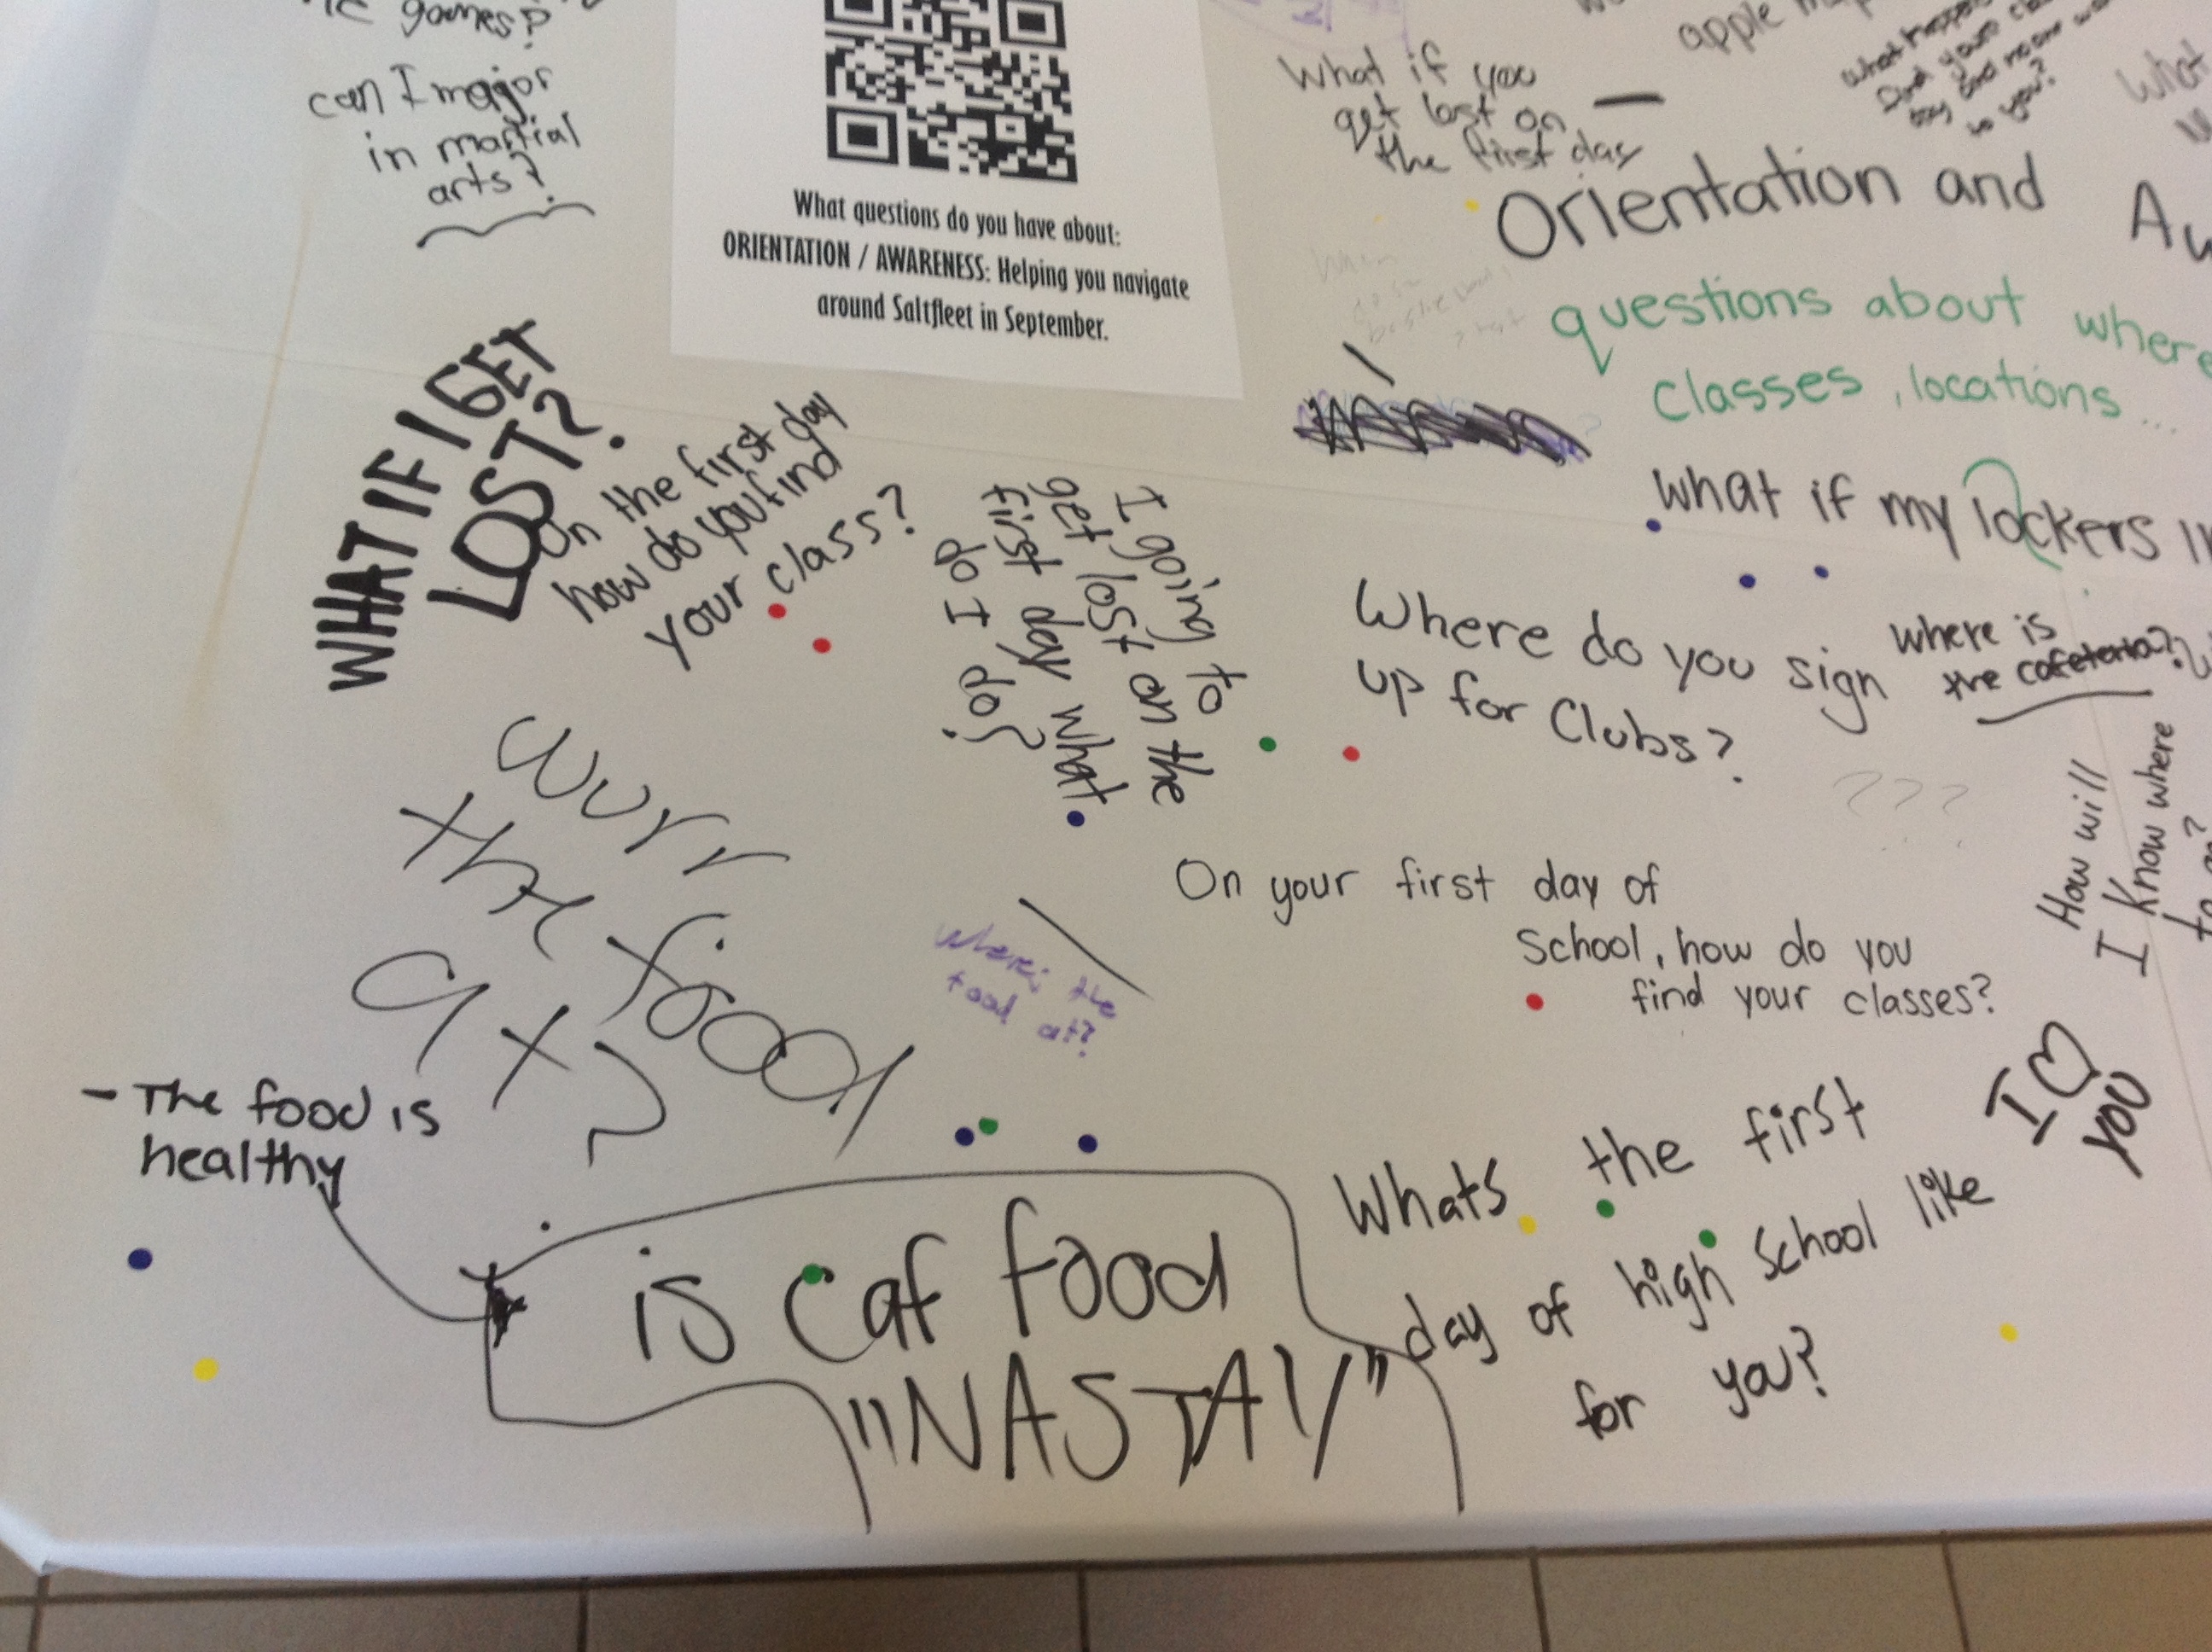 games?
can I major
in martial
arts?
What questions do you have about:
ORIENTATION / AWARENESS: Helping you navigate
around Saltfleet in September.
What if you
get lost on
the first day
apple
what happens
find your
day and no one
to you?
What
Orientation and
questions about where
classes, locations...
what if my lockers
WHAT IF I GET
LOST?
On the first day
how do you find
your class?
I going to
get lost on the
first day what
do I do?
Where do you sign
up for Clubs?
where is
the cafeteria?
???
How will
I Know where
to go?
wurr
the food
at?
Where's the
food at?
On your first day of
School, how do you
find your classes?
I ♡
YOU
- The food is
healthy
is caf food
"NASTAY"
Whats the first
day of high school like
for you?